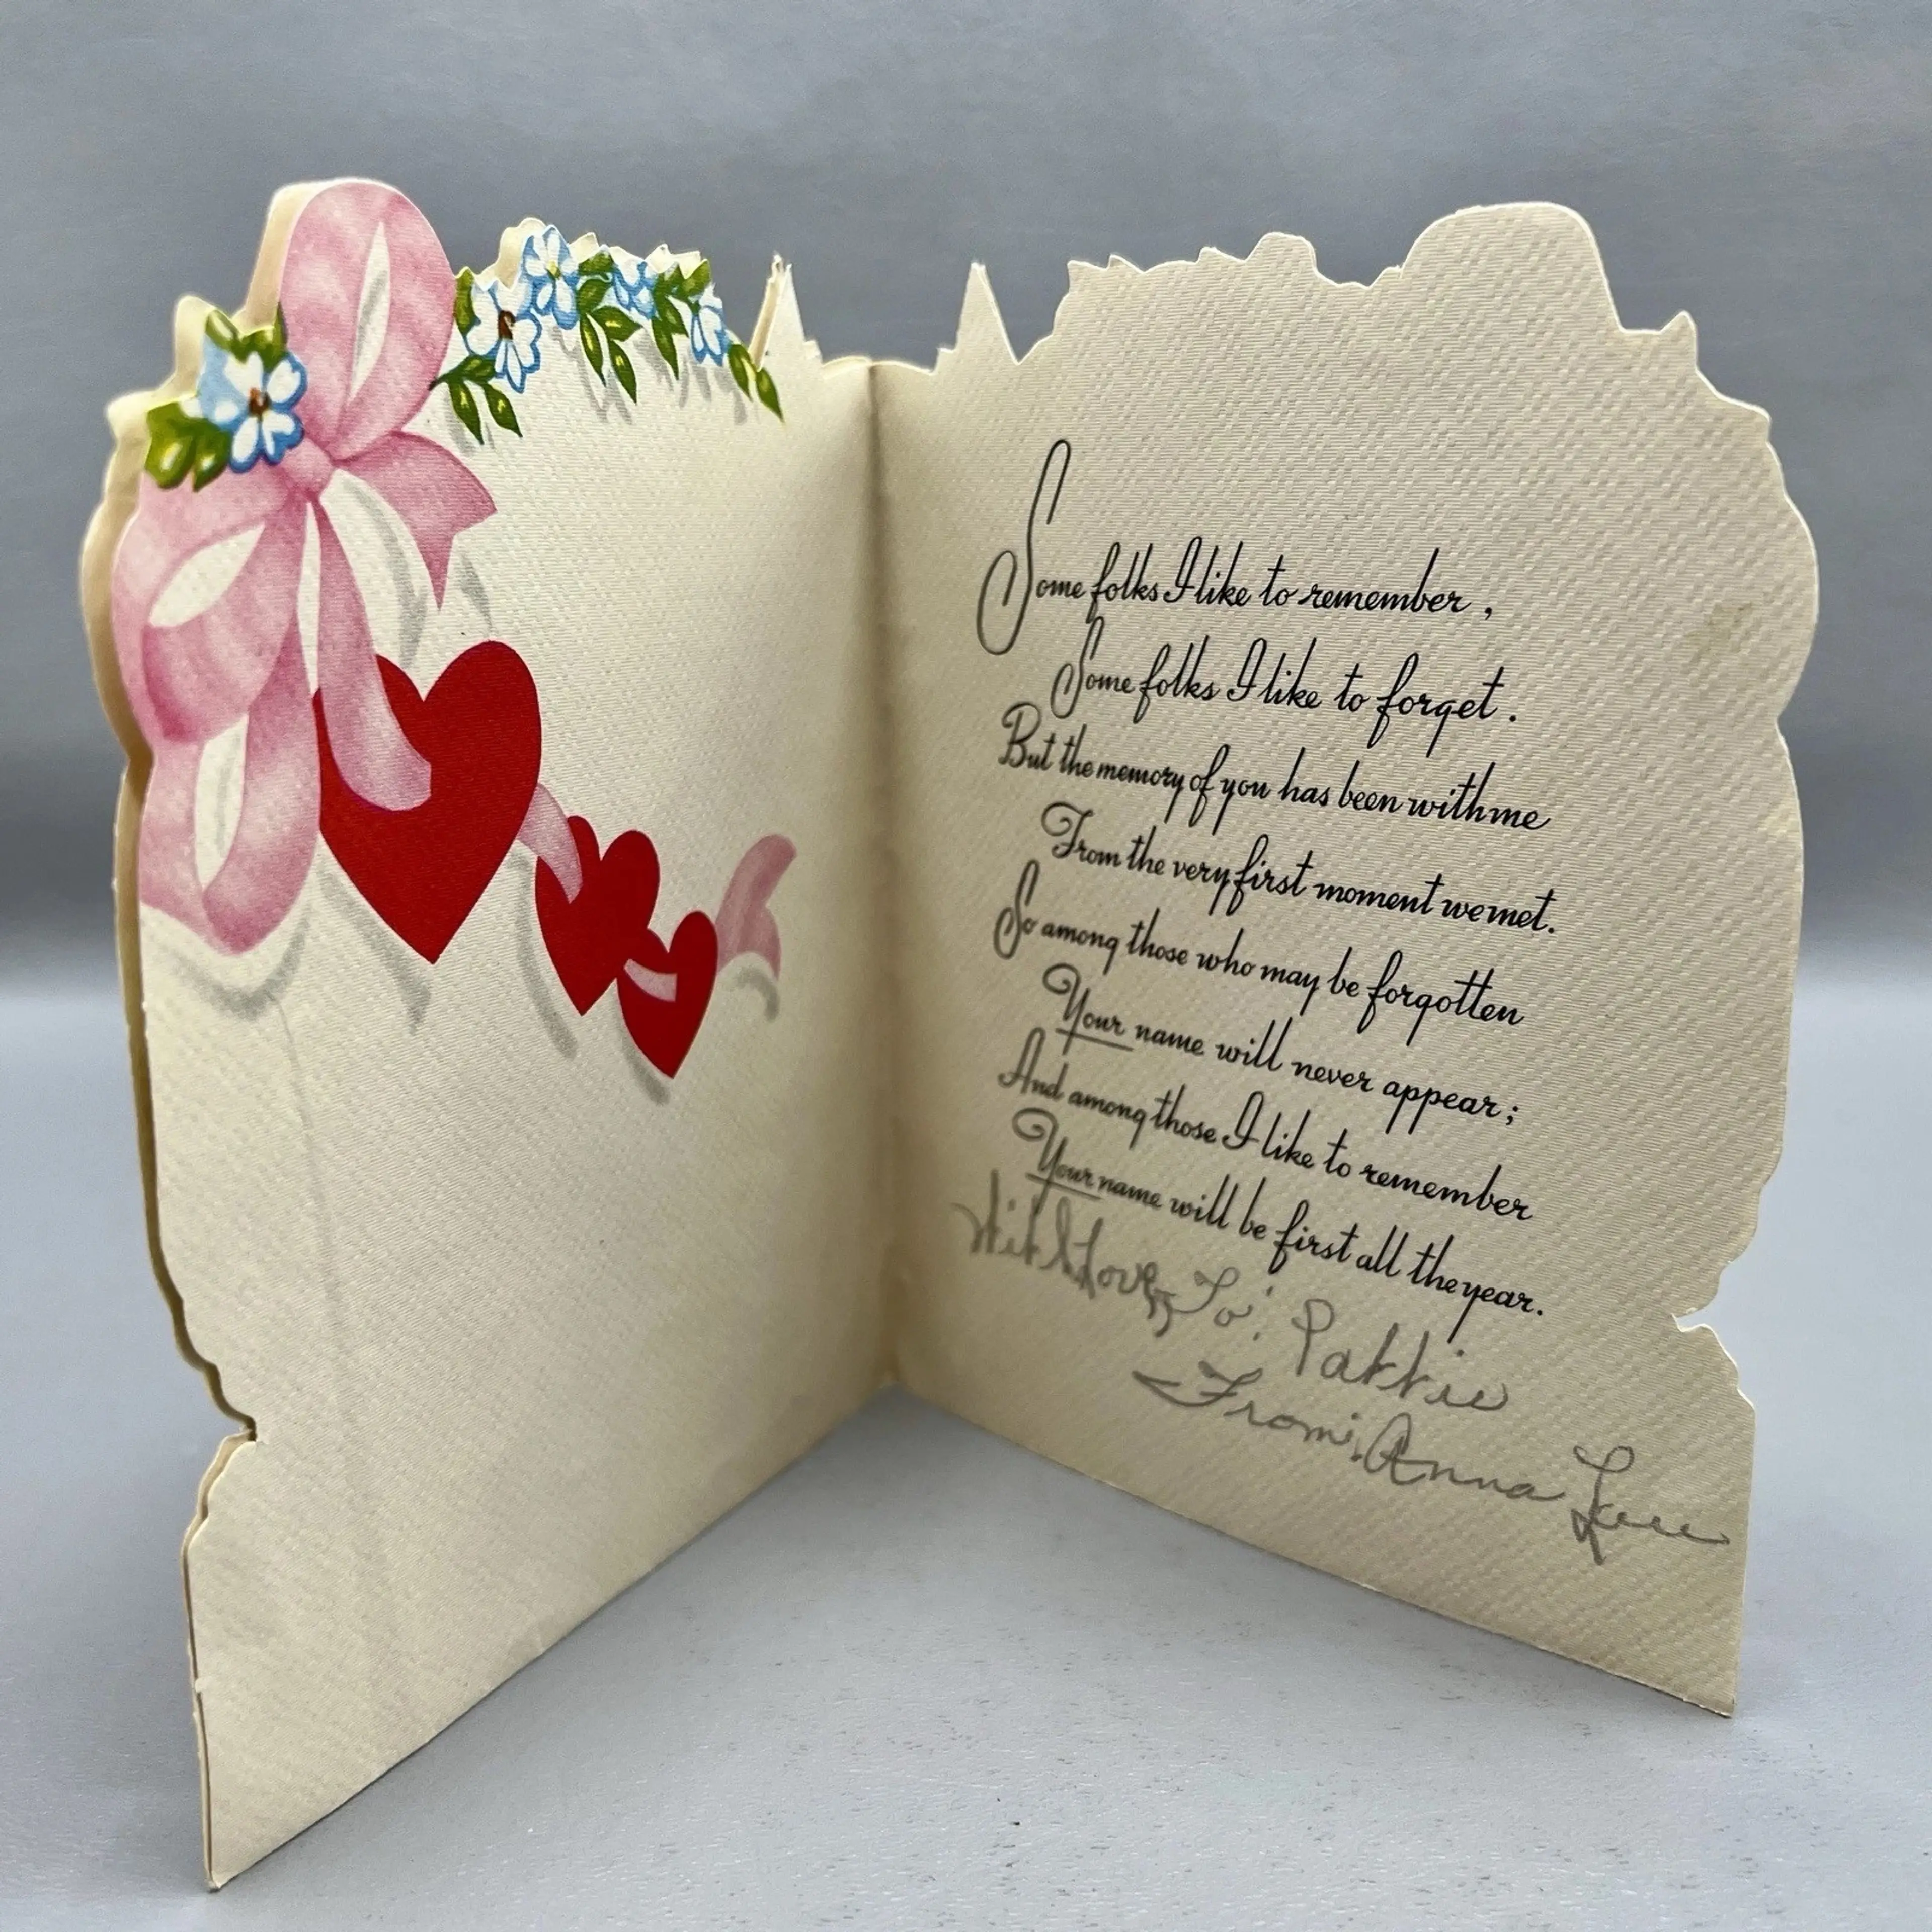 Some folks I like to remember,
Some folks I like to forget.
But the memory of you has been with me
From the very first moment we met.
So among those who may be forgotten
Your name will never appear;
And among those I like to remember
Your name will be first all the year.
With Love, To: Pattie
From: Anna Lee